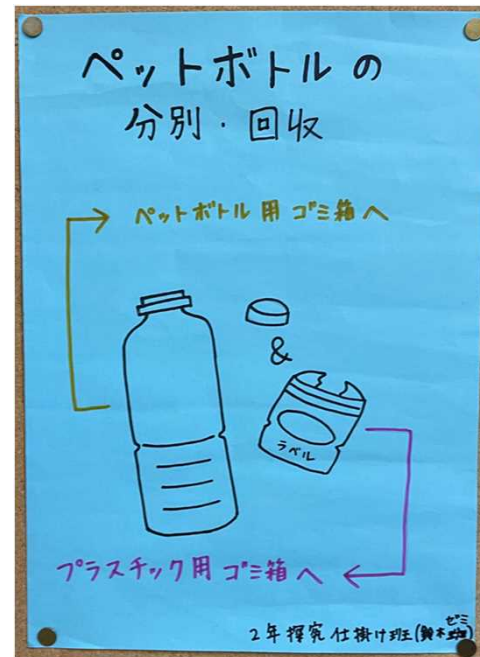 ペットボトルの
分別・回収
ペットボトル用ゴミ箱へ
&
ラベル
プラスチック用ゴミ箱へ
2年探究仕掛け班(鈴木ゼミ)